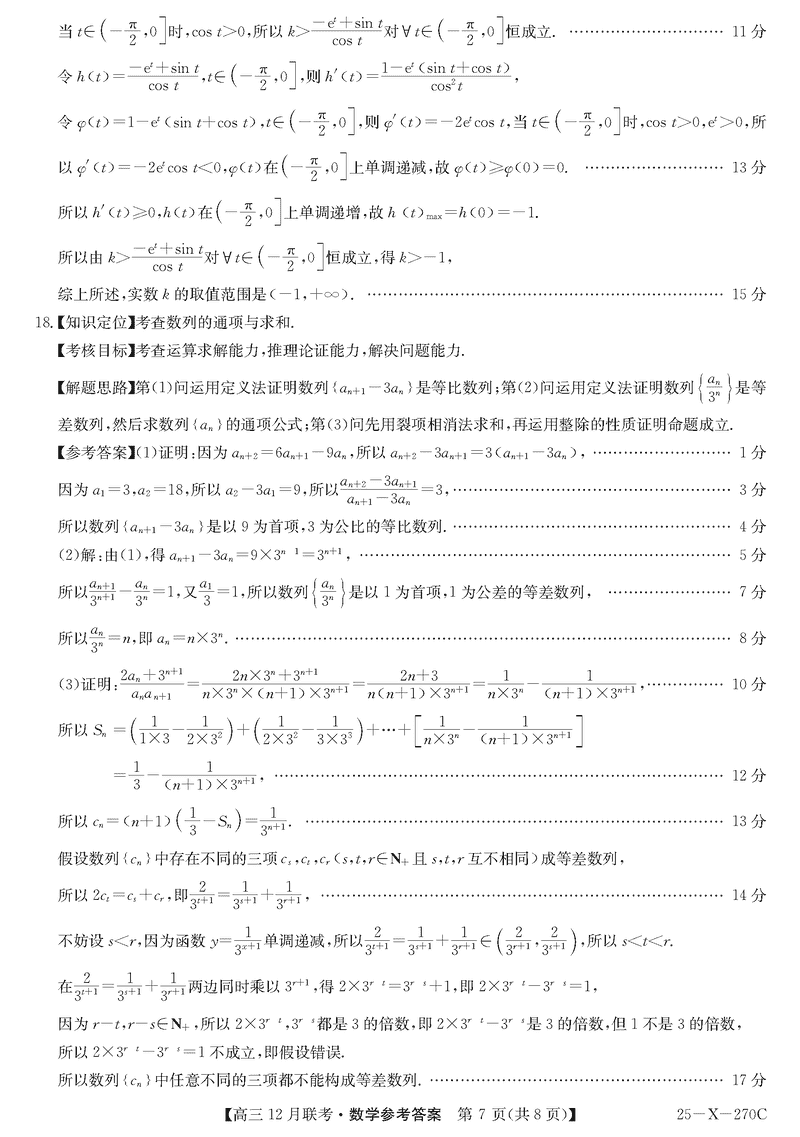 当 t∈(-π/2,0]时,cos t>0,所以 k>(-e^t+sin t)/(cos t)对∀t∈(-π/2,0]恒成立. ………………………… 11 分
令 h(t)=(-e^t+sin t)/(cos t),t∈(-π/2,0],则 h′(t)=(1-e^t(sin t+cos t))/(cos²t),
令 φ(t)=1-e^t(sin t+cos t),t∈(-π/2,0],则 φ′(t)=-2e^t cos t,当 t∈(-π/2,0]时,cos t>0,e^t>0,所
以 φ′(t)=-2e^t cos t<0,φ(t)在(-π/2,0]上单调递减,故 φ(t)≥φ(0)=0. ……………………… 13 分
所以 h′(t)≥0,h(t)在(-π/2,0]上单调递增,故 h (t)_max=h(0)=-1.
所以由 k>(-e^t+sin t)/(cos t)对∀t∈(-π/2,0]恒成立,得 k>-1,
综上所述,实数 k 的取值范围是(-1,+∞). …………………………………………………………… 15 分
18.【知识定位】考查数列的通项与求和.
【考核目标】考查运算求解能力,推理论证能力,解决问题能力.
【解题思路】第(1)问运用定义法证明数列{a_{n+1}-3a_n}是等比数列;第(2)问运用定义法证明数列{a_n/3^n}是等
差数列,然后求数列{a_n}的通项公式;第(3)问先用裂项相消法求和,再运用整除的性质证明命题成立.
【参考答案】(1)证明:因为 a_{n+2}=6a_{n+1}-9a_n,所以 a_{n+2}-3a_{n+1}=3(a_{n+1}-3a_n), ……………………… 1 分
因为 a_1=3,a_2=18,所以 a_2-3a_1=9,所以(a_{n+2}-3a_{n+1})/(a_{n+1}-3a_n)=3, ……………………………………………… 3 分
所以数列{a_{n+1}-3a_n}是以 9 为首项,3 为公比的等比数列. ……………………………………………… 4 分
(2)解:由(1),得 a_{n+1}-3a_n=9×3^{n 1}=3^{n+1}, ……………………………………………………………… 5 分
所以a_{n+1}/3^{n+1}-a_n/3^n=1,又a_1/3=1,所以数列{a_n/3^n}是以 1 为首项,1 为公差的等差数列, …………………… 7 分
所以a_n/3^n=n,即 a_n=n×3^n. …………………………………………………………………………………… 8 分
(3)证明:(2a_n+3^{n+1})/(a_n a_{n+1})=(2n×3^n+3^{n+1})/(n×3^n×(n+1)×3^{n+1})=(2n+3)/(n(n+1)×3^{n+1})=1/(n×3^n)-1/((n+1)×3^{n+1}), …………… 10 分
所以 S_n=(1/(1×3)-1/(2×3²))+(1/(2×3²)-1/(3×3³))+…+[1/(n×3^n)-1/((n+1)×3^{n+1})]
=1/3-1/((n+1)×3^{n+1}), …………………………………………………………………………… 12 分
所以 c_n=(n+1)(1/3-S_n)=1/3^{n+1}. ……………………………………………………………………… 13 分
假设数列{c_n}中存在不同的三项 c_s,c_t,c_r(s,t,r∈N_+且 s,t,r 互不相同)成等差数列,
所以 2c_t=c_s+c_r,即2/3^{t+1}=1/3^{s+1}+1/3^{r+1}, …………………………………………………………………… 14 分
不妨设 s<r,因为函数 y=1/3^{x+1}单调递减,所以2/3^{t+1}=1/3^{s+1}+1/3^{r+1}∈(2/3^{r+1},2/3^{s+1}),所以 s<t<r.
在2/3^{t+1}=1/3^{s+1}+1/3^{r+1}两边同时乘以 3^{r+1},得 2×3^{r t}=3^{r s}+1,即 2×3^{r t}-3^{r s}=1,
因为 r-t,r-s∈N_+,所以 2×3^{r t},3^{r s}都是 3 的倍数,即 2×3^{r t}-3^{r s}是 3 的倍数,但 1 不是 3 的倍数,
所以 2×3^{r t}-3^{r s}=1 不成立,即假设错误.
所以数列{c_n}中任意不同的三项都不能构成等差数列. ………………………………………………… 17 分
【高三 12 月联考·数学参考答案 第 7 页(共 8 页)】 25-X-270C